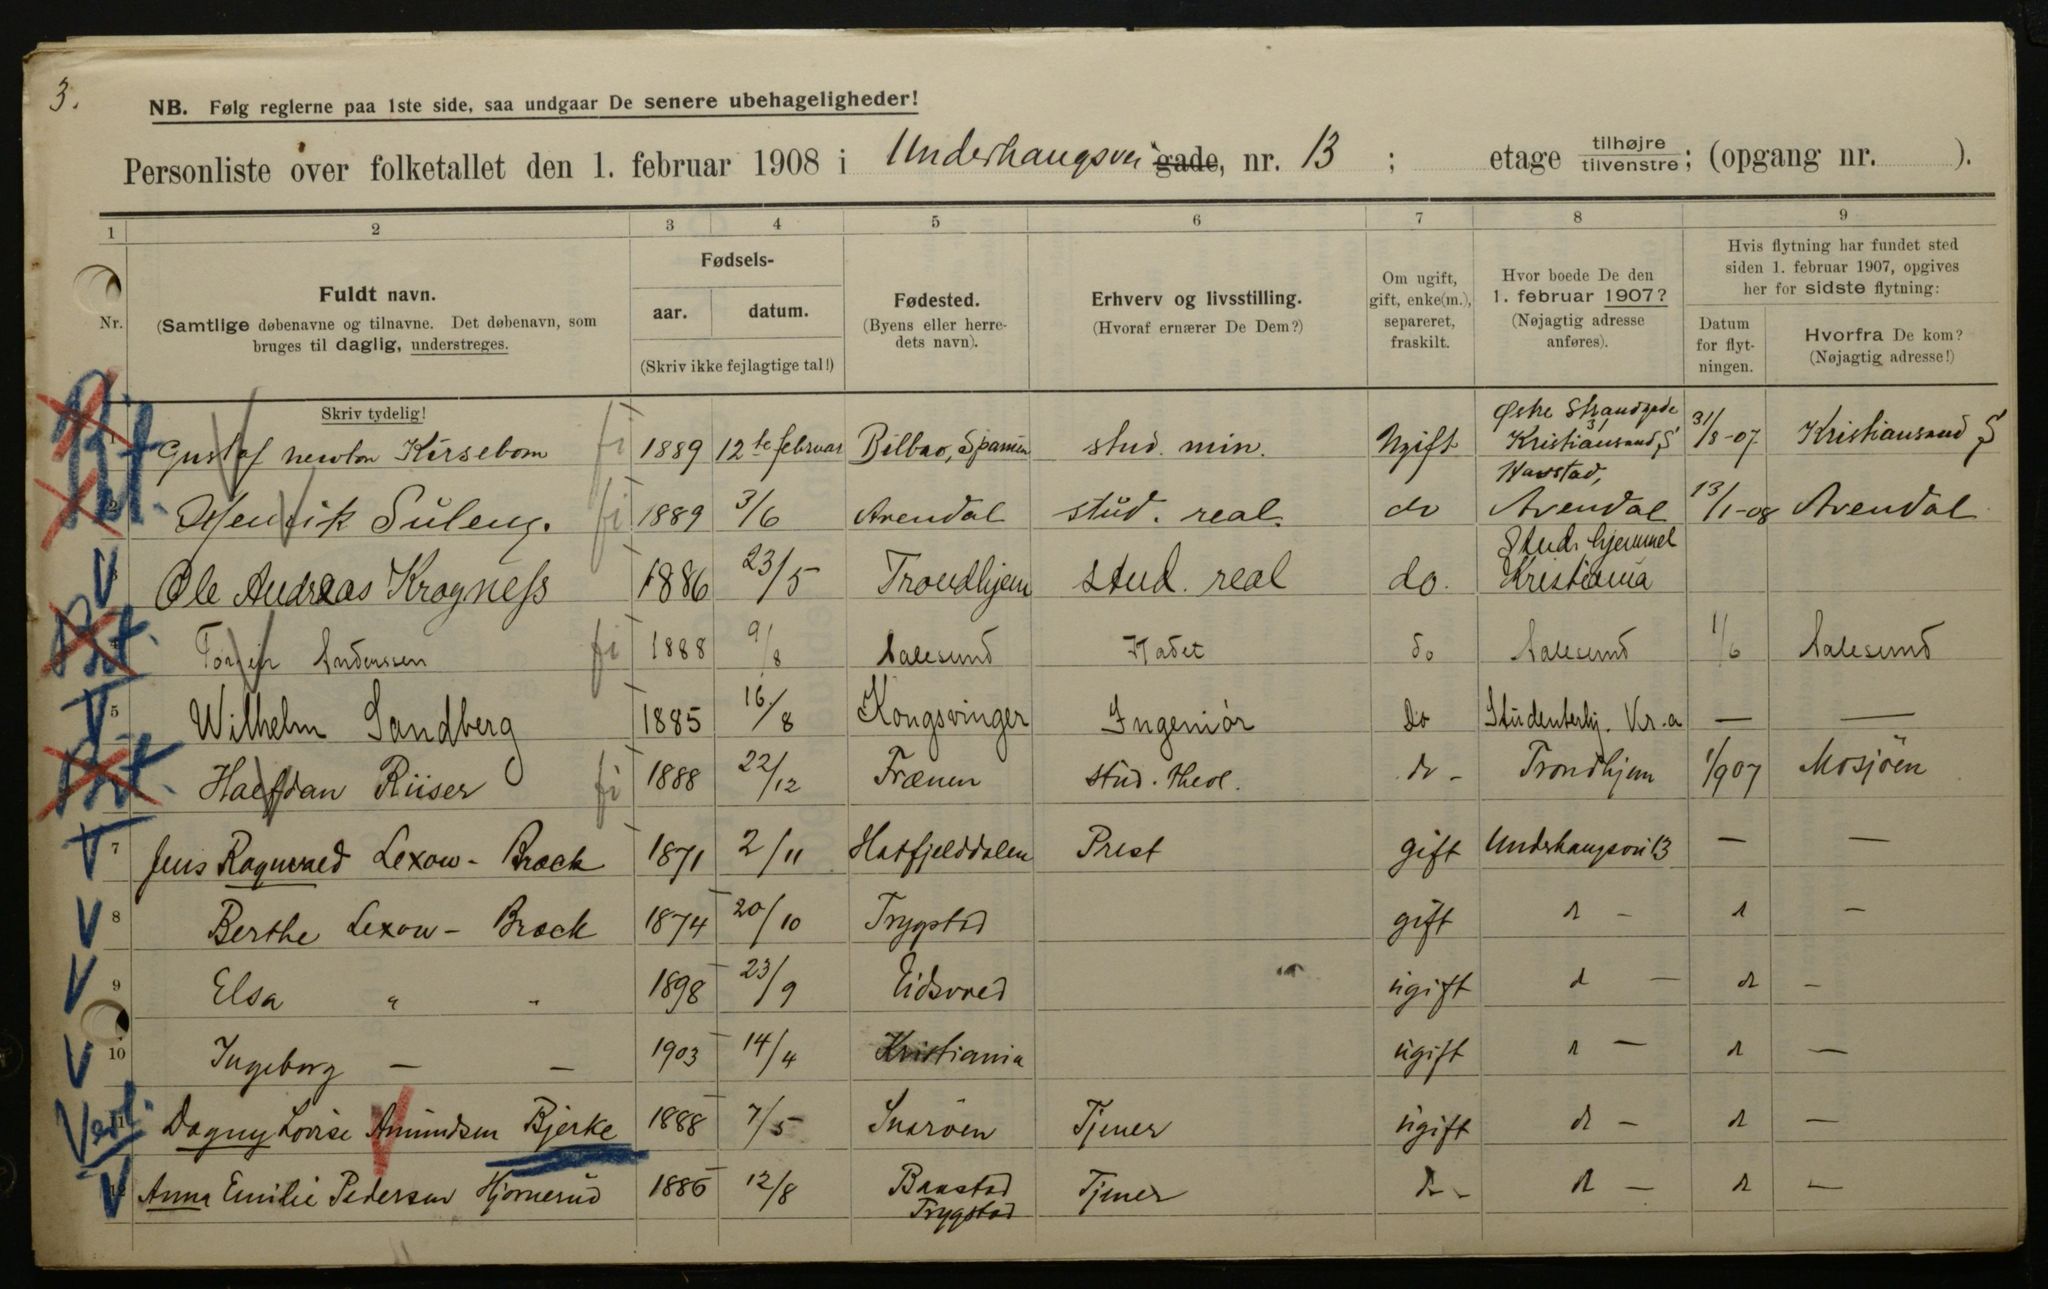 3.
NB. Følg reglerne paa 1ste side, saa undgaar De senere ubehageligheder!
Personliste over folketallet den 1. februar 1908 i Underhaugsvei gade, nr. 13 ; etage tilhøjre tilvenstre; (opgang nr. ).
1 2 3 4 5 6 7 8 9
Nr.
Fuldt navn.
(Samtlige døbenavne og tilnavne. Det døbenavn, som
bruges til daglig, understreges.
Skriv tydelig!
Fødsels-
aar. datum.
(Skriv ikke fejlagtige tal!)
Fødested.
(Byens eller herre-
dets navn).
Erhverv og livsstilling.
(Hvoraf ernærer De Dem?)
Om ugift,
gift, enke(m.),
separeret,
fraskilt.
Hvor boede De den
1. februar 1907?
(Nøjagtig adresse
anføres).
Hvis flytning har fundet sted
siden 1. februar 1907, opgives
her for sidste flytning:
Datum
for flyt-
ningen.
Hvorfra De kom?
(Nøjagtig adresse!)
1 Gustaf Newton Kirsebom fi 1889 12te februar Bilbao, Spanien stud. min. Ugift Østre Strandgade 31 Kristiansand S 31/8-07 Kristiansand S
2 Henrik Suleng. fi 1889 3/6 Arendal stud. real. do Arendal 13/1-08 Arendal
3 Ole Andreas Kragness 1886 23/5 Trondhjem stud. real do. Stud. hjemmet Kristiania
4 Anderssen fi 1888 9/8 Aalesund Kadet do Aalesund 1/6 Aalesund
5 Wilhelm Sandberg 1885 16/8 Kongsvinger Ingeniør Do Studenterhj. Kr.a — —
Halfdan Riiser fi 1888 22/12 Frænen stud. theol. do - Trondhjem 1/9 07 Mosjöen
7 Jens Ragnvald Lexow - Brock 1871 2/11 Hatfjelddalen Prest gift Underhaugsvei 13 — —
8 Berthe Lexow - Brock 1874 20/10 Trygstad gift d - d —
9 Elsa " " 1898 23/9 Eidsvold ugift d — d -
10 Ingeborg — — 1903 14/4 Kristiania ugift d — d —
11 Dagny Lovise Amundsen Bjerke 1888 7/5 Snarøen Tjener ugift d - d —
12 Anna Emilie Pedersen Hjornerud 1886 12/8 Baastad Tjener d - d - d —
Trygstad